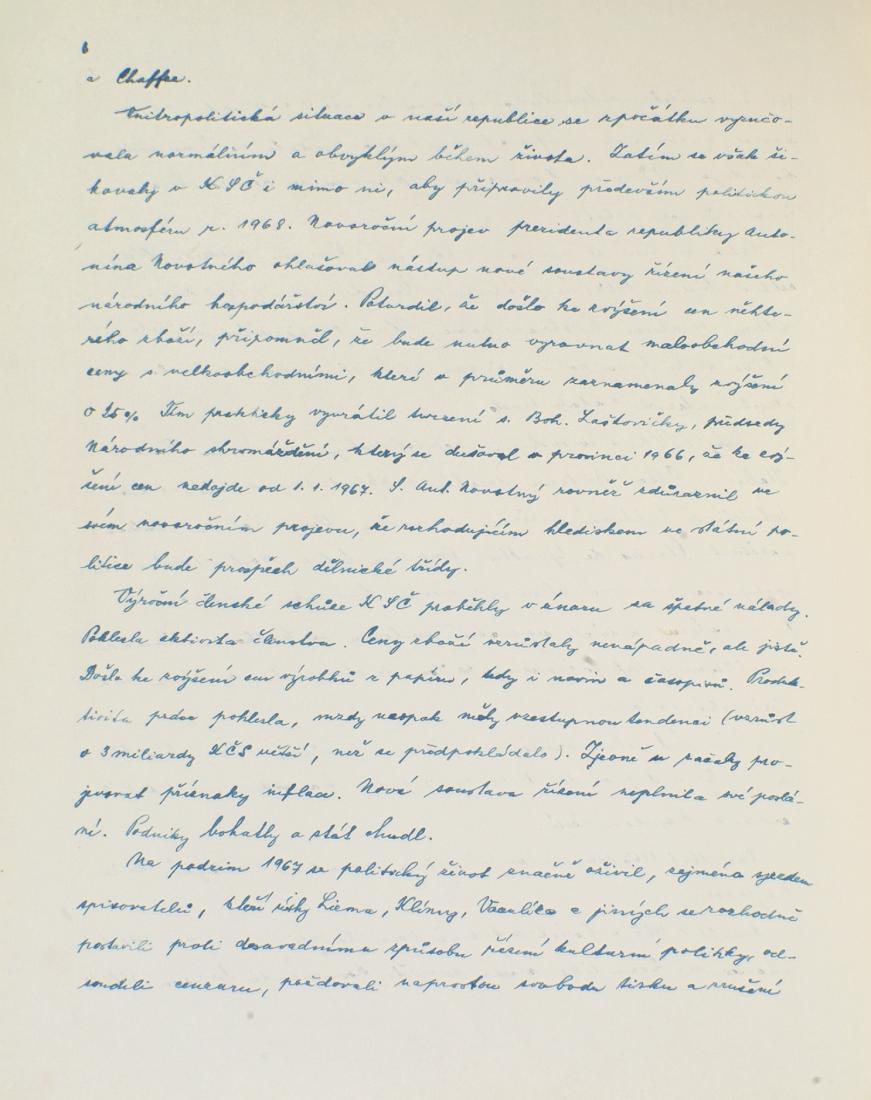 a Chaffee.
Vnitropolitická situace v naší republice se zpočátku vyznačo-
vala normálním a obvyklým během života. Zatím se však ši-
kovaly v KSČ i mimo ni, aby připravily především politickou
atmosféru r. 1968. Novoroční projev prezidenta republiky Anto-
nína Novotného ohlašoval nástup nové soustavy řízení našeho
národního hospodářství. Potvrdil, že došlo ke zvýšení cen někte-
rého zboží, připomněl, že bude nutno vyrovnat maloobchodní
ceny s velkoobchodními, které v průměru zaznamenaly zvýšení
o 25% Tím prakticky vyvrátil tvrzení s. Boh. Laštovičky, předsedy
Národního shromáždění, který se dušoval v prosinci 1966, že ke zvý-
šení cen nedojde od 1. 1. 1967. S. Ant. Novotný rovněž zdůraznil ve
svém novoročním projevu, že rozhodujícím hlediskem ve státní po-
litice bude prospěch dělnické třídy.
Výroční členské schůze KSČ proběhly v únoru za špatné nálady.
Poklesla aktivita členstva. Ceny zboží vzrůstaly nenápadně, ale jistě.
Došlo ke zvýšení cen výrobků z papíru, tedy i novin a časopisů. Produk-
tivita práce poklesla, mzdy naopak měly vzestupnou tendenci (vzrůst
o 3 miliardy KČS větší, než se předpokládalo). Zjevně se začaly pro-
jevovat příznaky inflace. Nová soustava řízení neplnila své poslá-
ní. Podniky bohatly a stát chudl.
Na podzim 1967 se politický život značně oživil, zejména sjezdem
spisovatelů, kteří ústy Liema, Klímy, Vaculíka a jiných se rozhodně
postavili proti dosavadnímu způsobu řízení kulturní politiky, od-
soudili cenzuru, požadovali naprostou svobodu tisku a zrušení